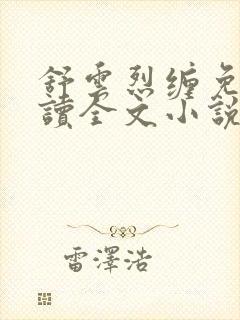 舒雲烈纏免
讀全文小說
雷澤浩